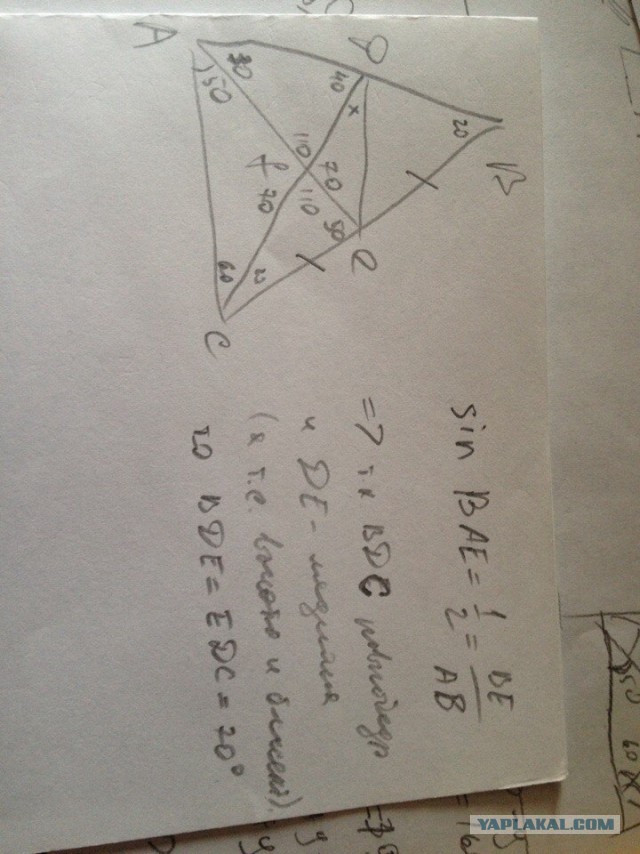 A
30
50
D
40
x
B
20
110
70
110
f
70
50
e
60
20
C
sin BAE = 1/2 = BE/AB
=> т.к BDC равнобедр
и DE - медиана
(а т.е. высота и биссект).
то BDE = EDC = 70°
50
60
A
YAPLAKAL.COM